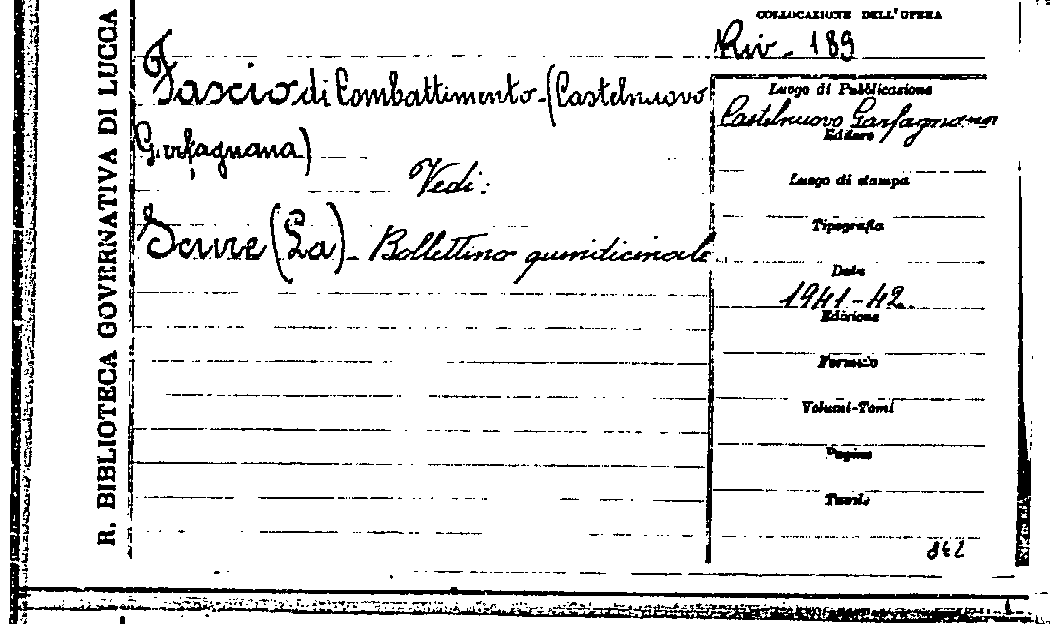 R. BIBLIOTECA GOVERNATIVA DI LUCCA
COLLOCAZIONE DELL'OPERA
Riv. 189
Fascio di Combattimento - (Castelnuovo
Garfagnana)
Vedi:
Scure (La) - Bollettino quindicinale.
Luogo di Pubblicazione
Castelnuovo Garfagnana
Editore
Luogo di stampa
Tipografia
Data
1941-42.
Edizione
Formato
Volumi-Tomi
Pagine
Tavole